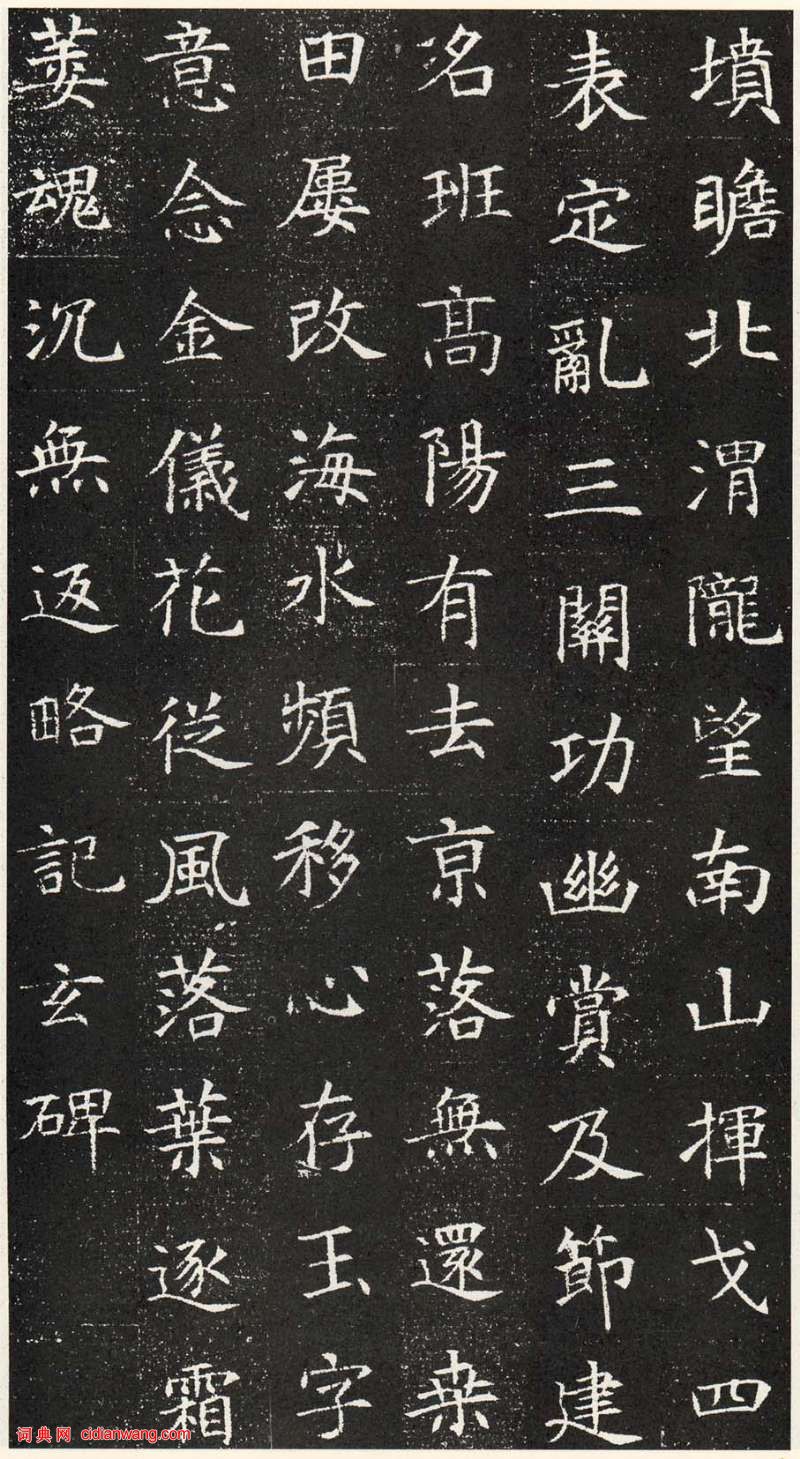 墳瞻北渭隴望南山揮戈四
表定亂三關功幽賞及節建
名班高陽有去京落無還桒
田屢改海水頻移心存玉字
意念金儀花從風落葉逐霜
萎魂沉無返略記玄碑
词典网 cidianwang.com